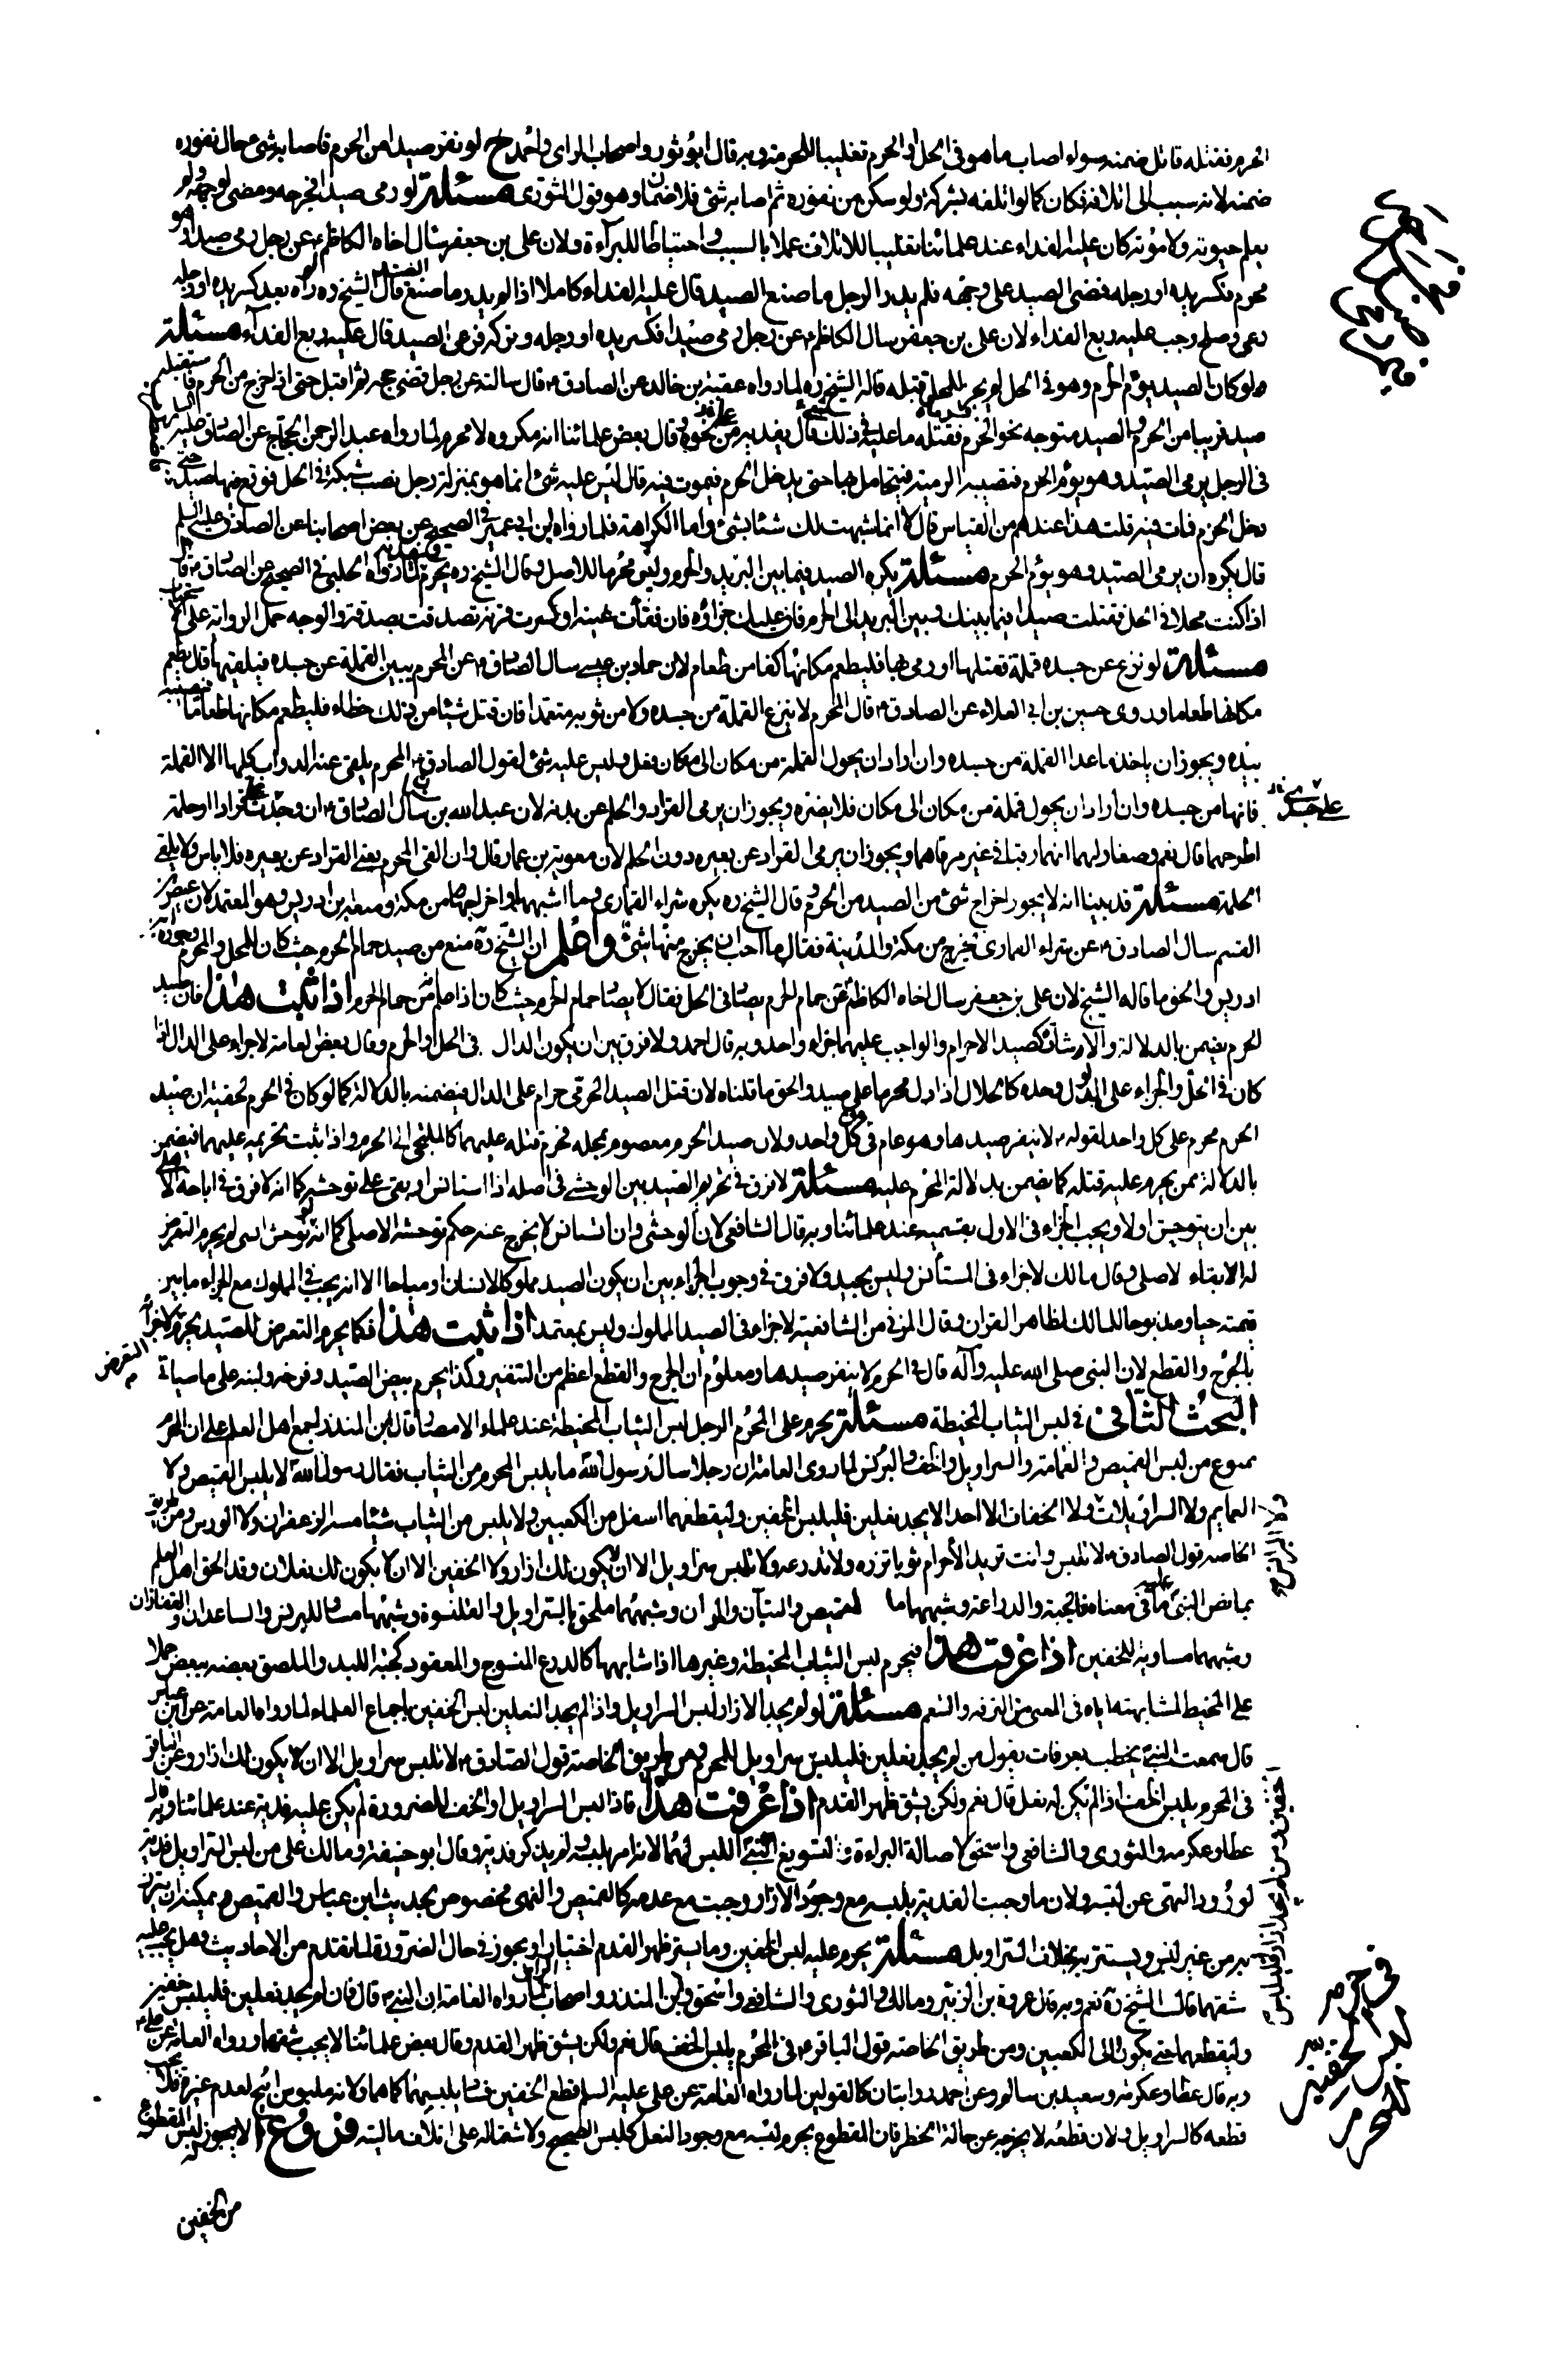 الحرم فقتله قاتل ضمنه سواء اصابه ما هو في الحل او الحرم تغليبا للحرمة وبه قال ابو ثور واصحاب الراى واحمد ح لو نفر صيدا من الحرم فاصابه شئ حال نفوره
ضمنه لانه سبب الى اتلافه فكان كما لو اتلفه بشركة ولو سكن من نفوره ثم اصابه شئ فلا ضمان وهو قول الثورى مسئلة لو رمى صيدا فجرحه ومضى لوجهه ولم
يعلم حيوته ولا موته كان عليه الفداء عند علمائنا تغليبا للاتلاف عملا بالسبب واحتياطا للبرآءة ولان على بن جعفر سال اخاه الكاظم عن رجل رمى صيدا وهو
محرم فكسر يده او رجله فمضى الصيد على وجهه فلم يدر الرجل ما صنع الصيد قال عليه الفداء كاملا اذا لم يدر ما صنع الصيد قال الشيخ ره لو رآه بعد كسر يده او رجله
رعى وصلح وجب عليه ربع الفداء لان على بن جعفر سال الكاظم عن رجل رمى صيدا فكسر يده او رجله وتركه فرعى الصيد قال عليه ربع الفداء مسئلة
لو كان الصيد يؤم الحرم وهو في الحل لم يجز للمحل قتله قاله الشيخ ره لما رواه عقبة بن خالد عن الصادق قال سالته عن رجل قضى حجه ثم اقبل حتى اذا خرج من الحرم فاستقبله
صيد قريبا من الحرم والصيد متوجه نحو الحرم فرماه فقتله ما عليه في ذلك شئ قال يفديه على نحوه وقال بعض علمائنا انه مكروه لا محرم لما رواه عبد الرحمن الحجاج عن الصادق
في الرجل يرمى الصيد وهو يؤم الحرم فتصيبه الرمية فيتحامل بها حتى يدخل الحرم فيموت فيه قال ليس عليه شئ انما هو بمنزلة رجل نصب شبكة في الحل فوقع فيها صيد فاضطرب حتى
دخل الحرم فمات فيه قلت هذا عندهم من القياس قال لا انما شبهت لك شيئا بشئ واما الكراهة فلما رواه ابن ابي عمير في الصحيح عن بعض اصحابنا عن الصادق عليه السلم
قال يكره ان يرمى الصيد وهو يؤم الحرم مسئلة يكره الصيد فيما بين البريد والحرم وليس محرما للاصل وقال الشيخ ره يحرم لما رواه الحلبى في الصحيح عن الصادق قال
اذا كنت محلا في الحل فقتلت صيدا فيما بينك وبين البريد الى الحرم فان عليك جزاؤه فان فقات عينه او كسرت قرنه تصدقت بصدقة والوجه حمل الرواية على الاستحباب
مسئلة لو نزع عن جسده قملة فقتلها او رمى بها فليطعم مكانها كفا من طعام لان حماد بن عيسى سال الصادق عن المحرم يبين القملة عن جسده فيلقيها قال يطعم
مكانها طعاما وروى حسين بن ابى العلاء عن الصادق قال المحرم لا ينزع القملة من جسده ولا من ثوبه متعمدا فان قتل شيئا من ذلك خطاء فليطعم مكانها طعاما قبضة
بيده ويجوز ان ياخذ ما عدا القملة من جسده وان اراد ان يحول القملة من مكان الى مكان فعل وليس عليه شئ لقول الصادق المحرم يلقى عنه الدواب كلها الا القملة
فانها من جسده وان اراد ان يحول قملة من مكان الى مكان فلا يضره ويجوز ان يرمى القراد والحلم عن بدنه لان عبد الله بن سنان سال الصادق ان وجدت على قرادا او حلمة
اطرحهما قال نعم وصغارا لهما انهما رقيا في غير مرقاهما ويجوز ان يرمى القراد عن بعيره دون الحلم لان معوية بن عمار قال وان القى المحرم القراد عن بعيره فلا باس ولا يلقى
الحلمة مسئلة قد بينا انه لا يجوز اخراج شئ من الصيد من الحرم وقال الشيخ ره يكره شراء القمارى وما اشبهها واخراجها من مكة ومنعه ابن ادريس وهو المعتمد لان عيص بن
القسم سال الصادق عن شراء القمارى تخرج من مكة والمدينة فقال ما احب ان يخرج منهما شئ واعلم ان الشيخ ره منع من صيد حمام الحرم حيث كان للمحل والمحرم وجوزه ابن
ادريس والحق ما قاله الشيخ لان على بن جعفر سال اخاه الكاظم عن حمام الحرم يصاد في الحل فقال لا يصاد حمام الحرم حيث كان اذا علم انه من حمام الحرم اذا ثبت هذا فان صيد
الحرم يضمن بالدلالة والارشاد كصيد الاحرام والواجب عليهما جزاء واحد وبه قال احمد ولا فرق بين ان يكون الدال في الحل او الحرم وقال بعض العامة لا جزاء على الدال اذا
كان في الحل والجزاء على المدلول وحده كالحلال اذا دل محرما على صيد والحق ما قلناه لان قتل الصيد الحرمى حرام على الدال فيضمنه بالدلالة كما لو كان في الحرم تحقيقه ان صيد
الحرم محرم على كل واحد لقوله لا ينفر صيدها وهو عام في حق كل واحد ولان صيد الحرم معصوم بمحله فحرم قتله عليهما كالملتجئ الى الحرم واذا ثبت تحريمه عليهما فيضمن
بالدلالة ممن يحرم عليه قتله كما يضمن بدلالة المحرم عليه مسئلة لا فرق في تحريم الصيد بين الوحشى في اصله اذا استانس او بقى على توحشه كما انه لا فرق في اباحة الاهلى
بين ان يتوحش او لا ويجب الجزاء في الاول بقسميه عند علمائنا وبه قال الشافعى لان الوحشى وان استانس لا يخرج عنه حكم توحشه الاصلى كما انه لو توحش انسى لم يحرم التعرض
له لابقاء لاصله وقال مالك لا جزاء في المستأنس وليس بجيد ولا فرق في وجوب الجزاء بين ان يكون الصيد مملوكا لانسان او مباحا الا انه يجب في المملوك مع الجزاء ما بين
قيمته حيا ومذبوحا للمالك لظاهر القران وقال المزنى من الشافعية لا جزاء في الصيد المملوك وليس بمعتمد اذا ثبت هذا فكما يحرم التعرض للصيد يحرم لاجزائه
بالجرح والقطع لان النبى صلى الله عليه وآله قال في الحرم لا ينفر صيدها ومعلوم ان الجرح والقطع اعظم من التنفير وكذا يحرم بيض الصيد وفرخه ولبنه على ما سياتى
التعرض
البحث الثانى في لبس الثياب المخيطة مسئلة يحرم على المحرم الرجل لبس الثياب المخيطة عند علماء الامصار قال ابن المنذر اجمع اهل العلم على ان المحرم
ممنوع من لبس القميص والعمامة والسراويل والخف والبرنس لما روى العامة ان رجلا سال رسول الله ما يلبس المحرم من الثياب فقال رسول الله لا يلبس القميص ولا
العمايم ولا السراويلات ولا الخفاف الا احد لا يجد نعلين فليلبس الخفين وليقطعهما اسفل من الكعبين ولا يلبس من الثياب شيئا مسه الزعفران ولا الورس ومن طريق
ولا البرانس
الخاصة قول الصادق لا تلبس وانت تريد الاحرام ثوبا تزره ولا تدرعه ولا تلبس سراويل الا ان لا يكون لك ازار ولا الخفين الا ان لا يكون لك نعلان وقد الحق اهل العلم
بما نص النبى عليه ما في معناه فالجبة والدراعة وشبههما ملحق بالقميص والتبان والران وشبههما ملحق بالسراويل والقلنسوة وشبهها مساو للبرنس والساعدان والقفازان
وشبههما مساوية للخفين اذا عرفت هذا فيحرم لبس الثياب المخيطة وغيرها اذا شابهها كالدرع المنسوج والمعقود كجبة اللبد والملصق بعضه ببعض حملا
على المخيط لمشابهته اياه في المعنى من الترفه والتنعم مسئلة لو لم يجد الازار لبس السراويل واذا لم يجد النعلين لبس الخفين باجماع العلماء لما رواه العامة عن ابن عباس
قال سمعت النبى يخطب بعرفات يقول من لم يجد نعلين فليلبس خفين ومن لم يجد ازارا فليلبس سراويل للمحرم ومن طريق الخاصة قول الصادق لا تلبس سراويل الا ان لا يكون لك ازار وعن الباقر
في المحرم يلبس الخف اذا لم يكن له نعل قال نعم ولكن يشق ظهر القدم اذا عرفت هذا فاذا لبس السراويل او الخف للضرورة لم يكن عليه فدية عند علمائنا وبه قال
عطا وعكرمه والثورى والشافعى واسحق لاصالة البراءة ولتسويغ النبى اللبس لهما لانه امر بلبسه لم يذكر فدية وقال ابو حنيفة ومالك على من لبس السراويل فدية
لورود النهى عن لبسه ولان ما وجبت الفدية بلبسه مع وجود الازار وجبت مع عدمه كالقميص والنهى مخصوص بحديث ابن عباس والقميص يمكنه ان يتزر
به من غير لبس ويستتر به بخلاف السراويل مسئلة يحرم عليه لبس الخفين وما يستر ظهر القدم اختيارا ويجوز في حال الضرورة لما تقدم من الاحاديث وهل يجب عليه
شقهما قال الشيخ ره نعم وبه قال عروة بن الزبير ومالك والثورى والشافعى واسحق وابن المنذر واصحاب الراى لما رواه العامة ان النبى قال فان لم يجد نعلين فليلبس خفين
وليقطعهما حتى يكونا الى الكعبين ومن طريق الخاصة قول الباقر في المحرم يلبس الخف قال نعم ولكن يشق ظهر القدم وقال بعض علمائنا لا يجب شقهما ورواه العامة عن على
وبه قال عطا وعكرمة وسعيد بن سالم وعن احمد روايتان كالقولين لما رواه العامة عن على عليه السلم قطع الخفين فساد يلبسهما كما هما ولانه ملبوس ابيح لعدم غيره فلا يجب
قطعه كالسراويل ولان قطعه لا يخرجه عن حالة الخطر فان المقطوع يحرم لبسه مع وجود النعل كلبس الصحيح ولاشتماله على اتلاف ماليته فروع ا لا يجوز لبس المقطوع
في حرمة
لبس الخفين
للمحرم
من الخفين